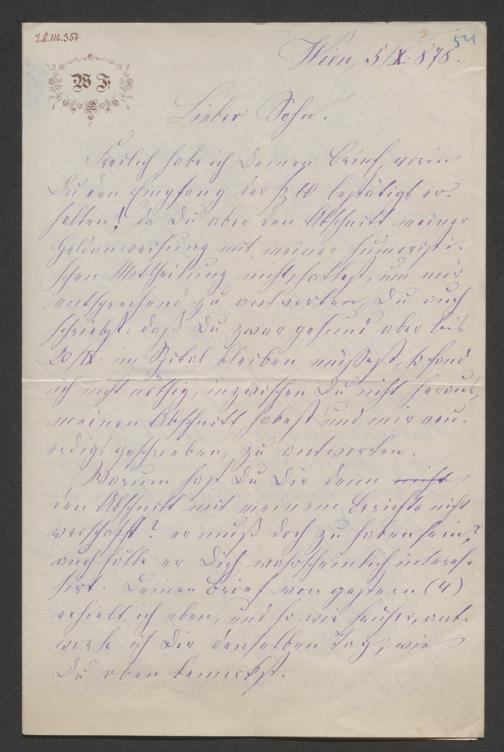 I.N. 110.350
54
W F
Wien, 5/X. 878.
Lieber Sohn!
Freilich habe ich Deinen Brief, worin
Du den Empfang der f 10 bestätigst er-
halten! da Du aber den Abschnitt meiner
Geldanweisung mit meiner humoristi-
schen Mittheilung nicht hattest, um mir
entsprechend zu antworten, Du auch
schriebst: daß Du zwar gesund aber bis
20/IX. im Spital bleiben müßest, so fand
ich nicht nöthig, inzwischen Du nicht
meinen Abschnitt habest und mir neu-
erdigs geschrieben, zu antworten.
Warum hast Du Dir denn nicht
den Abschnitt mit meinem Berichte nicht
verschafft? er muß doch zu haben sein?
auch hätte er Dich wahrscheinlich interes-
sirt. Deinen Brief von gestern (4)
erhielt ich eben, und so wie früher, ant-
worte ich Dir denselben Tag, wie
Du oben bemerkst.